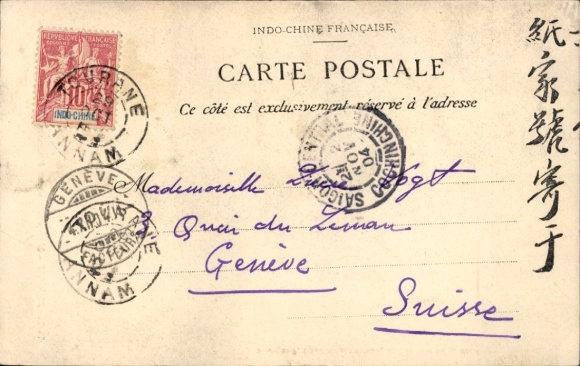 INDO-CHINE FRANÇAISE
CARTE POSTALE
Ce côté est exclusivement réservé à l'adresse
RÉPUBLIQUE FRANÇAISE
10
INDO-CHINE
TOURANE
ANNAM
GENÈVE
FACTEURS
ANNAM
SAIGON CENTRAL
COCHINCHINE
2
NOV
04
Mademoiselle Vogt
3 Quai du Léman
Genève
Suisse
紙家號寄于